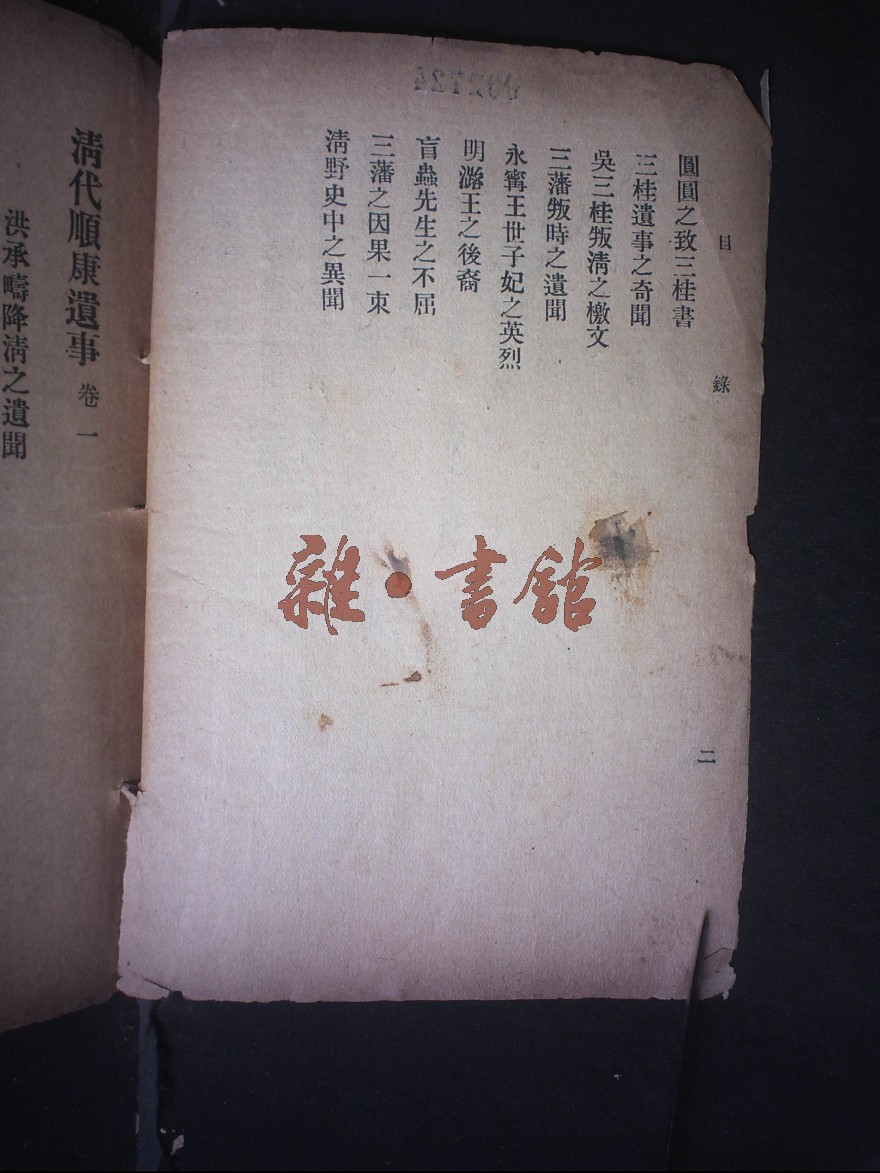 目錄
二
圓圓之致三桂書
三桂遺事之奇聞
吳三桂叛清之檄文
三藩叛時之遺聞
永寗王世子妃之英烈
明潞王之後裔
盲蟲先生之不屈
三藩之因果一束
清野史中之異聞
清代順康遺事 卷一
洪承疇降清之遺聞
雜·書館